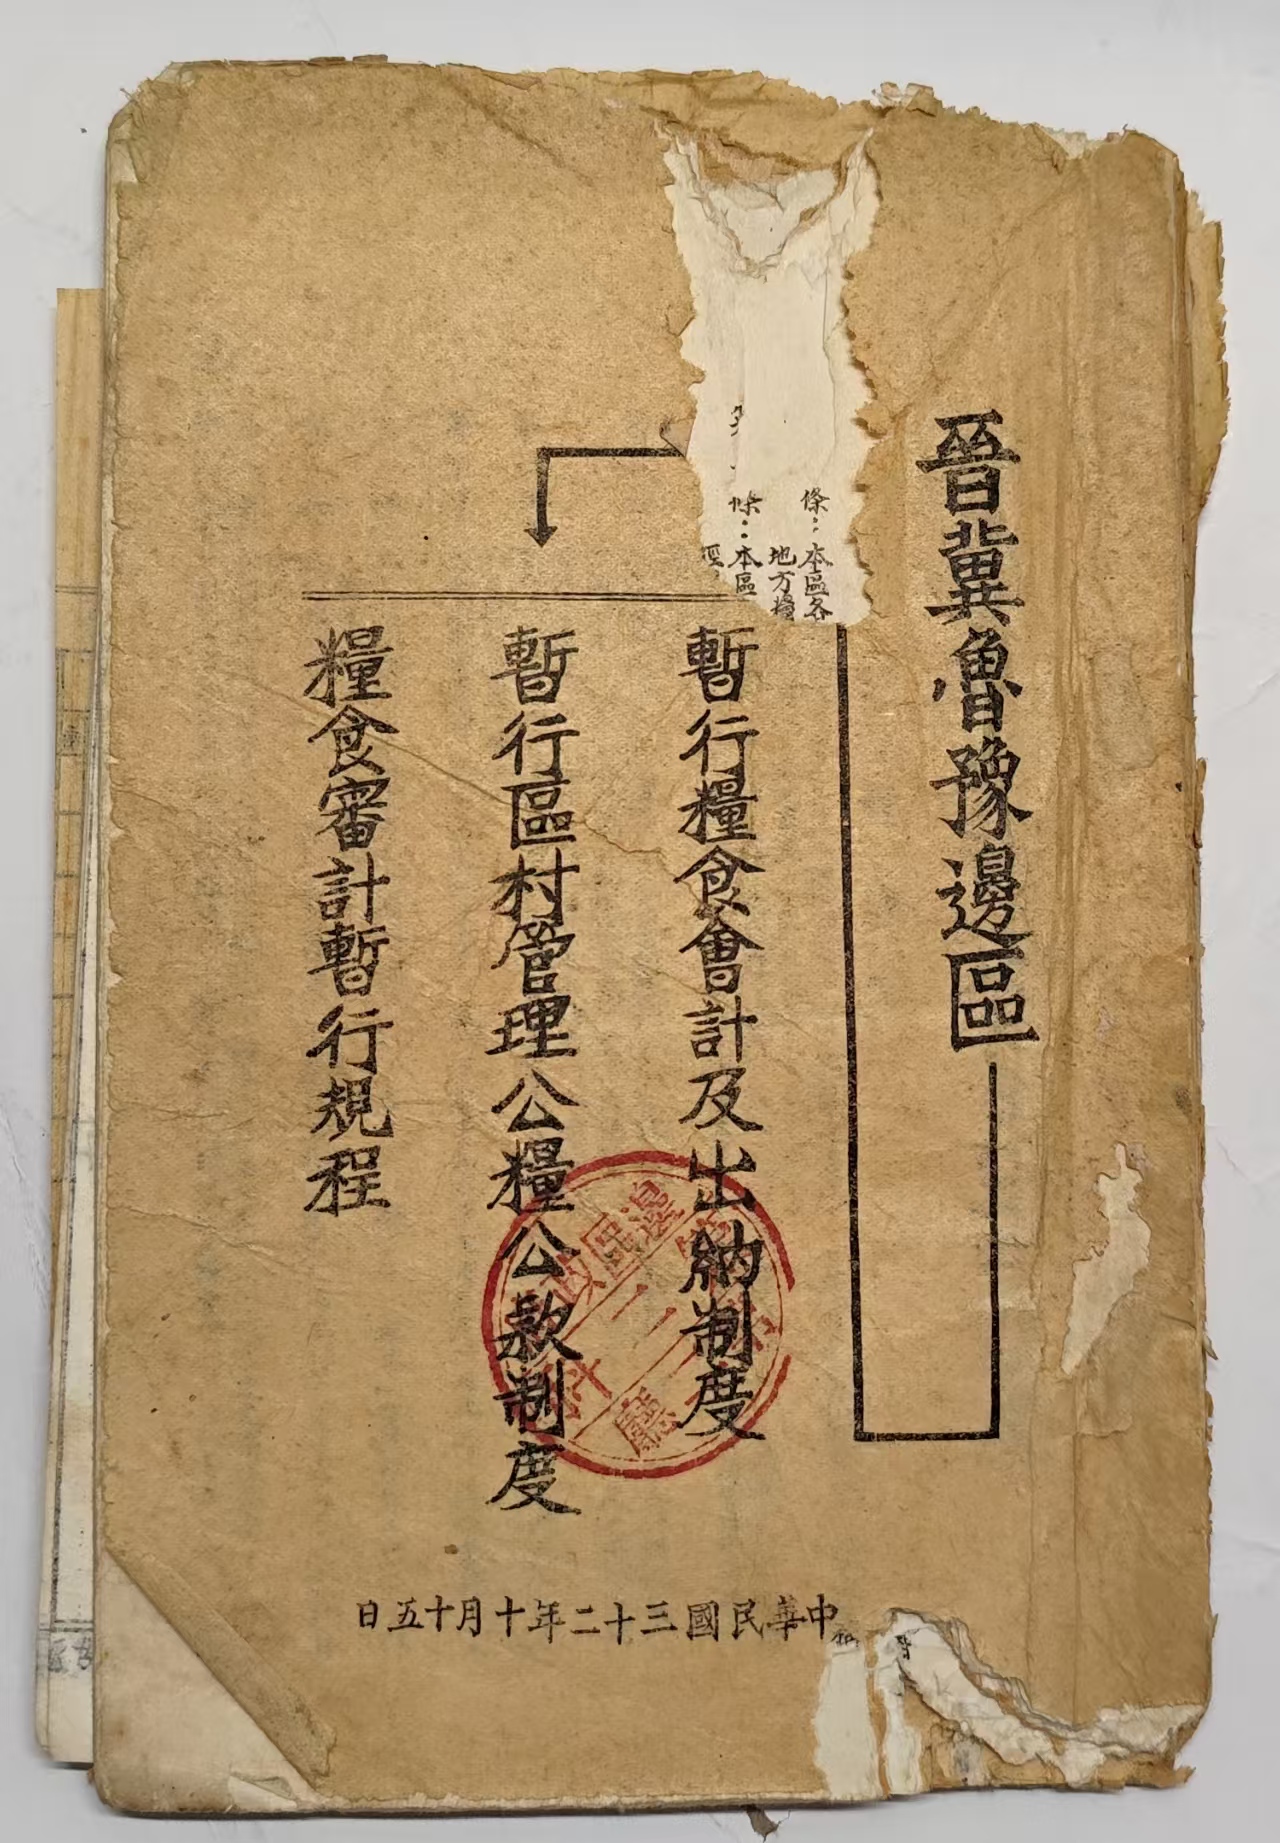 晉冀魯豫邊區
暫行糧食會計及出納制度
暫行區村管理公糧公款制度
糧食審計暫行規程
中華民國三十二年十月十五日
條：本區各
地方糧
條：本區
邊區政
廳